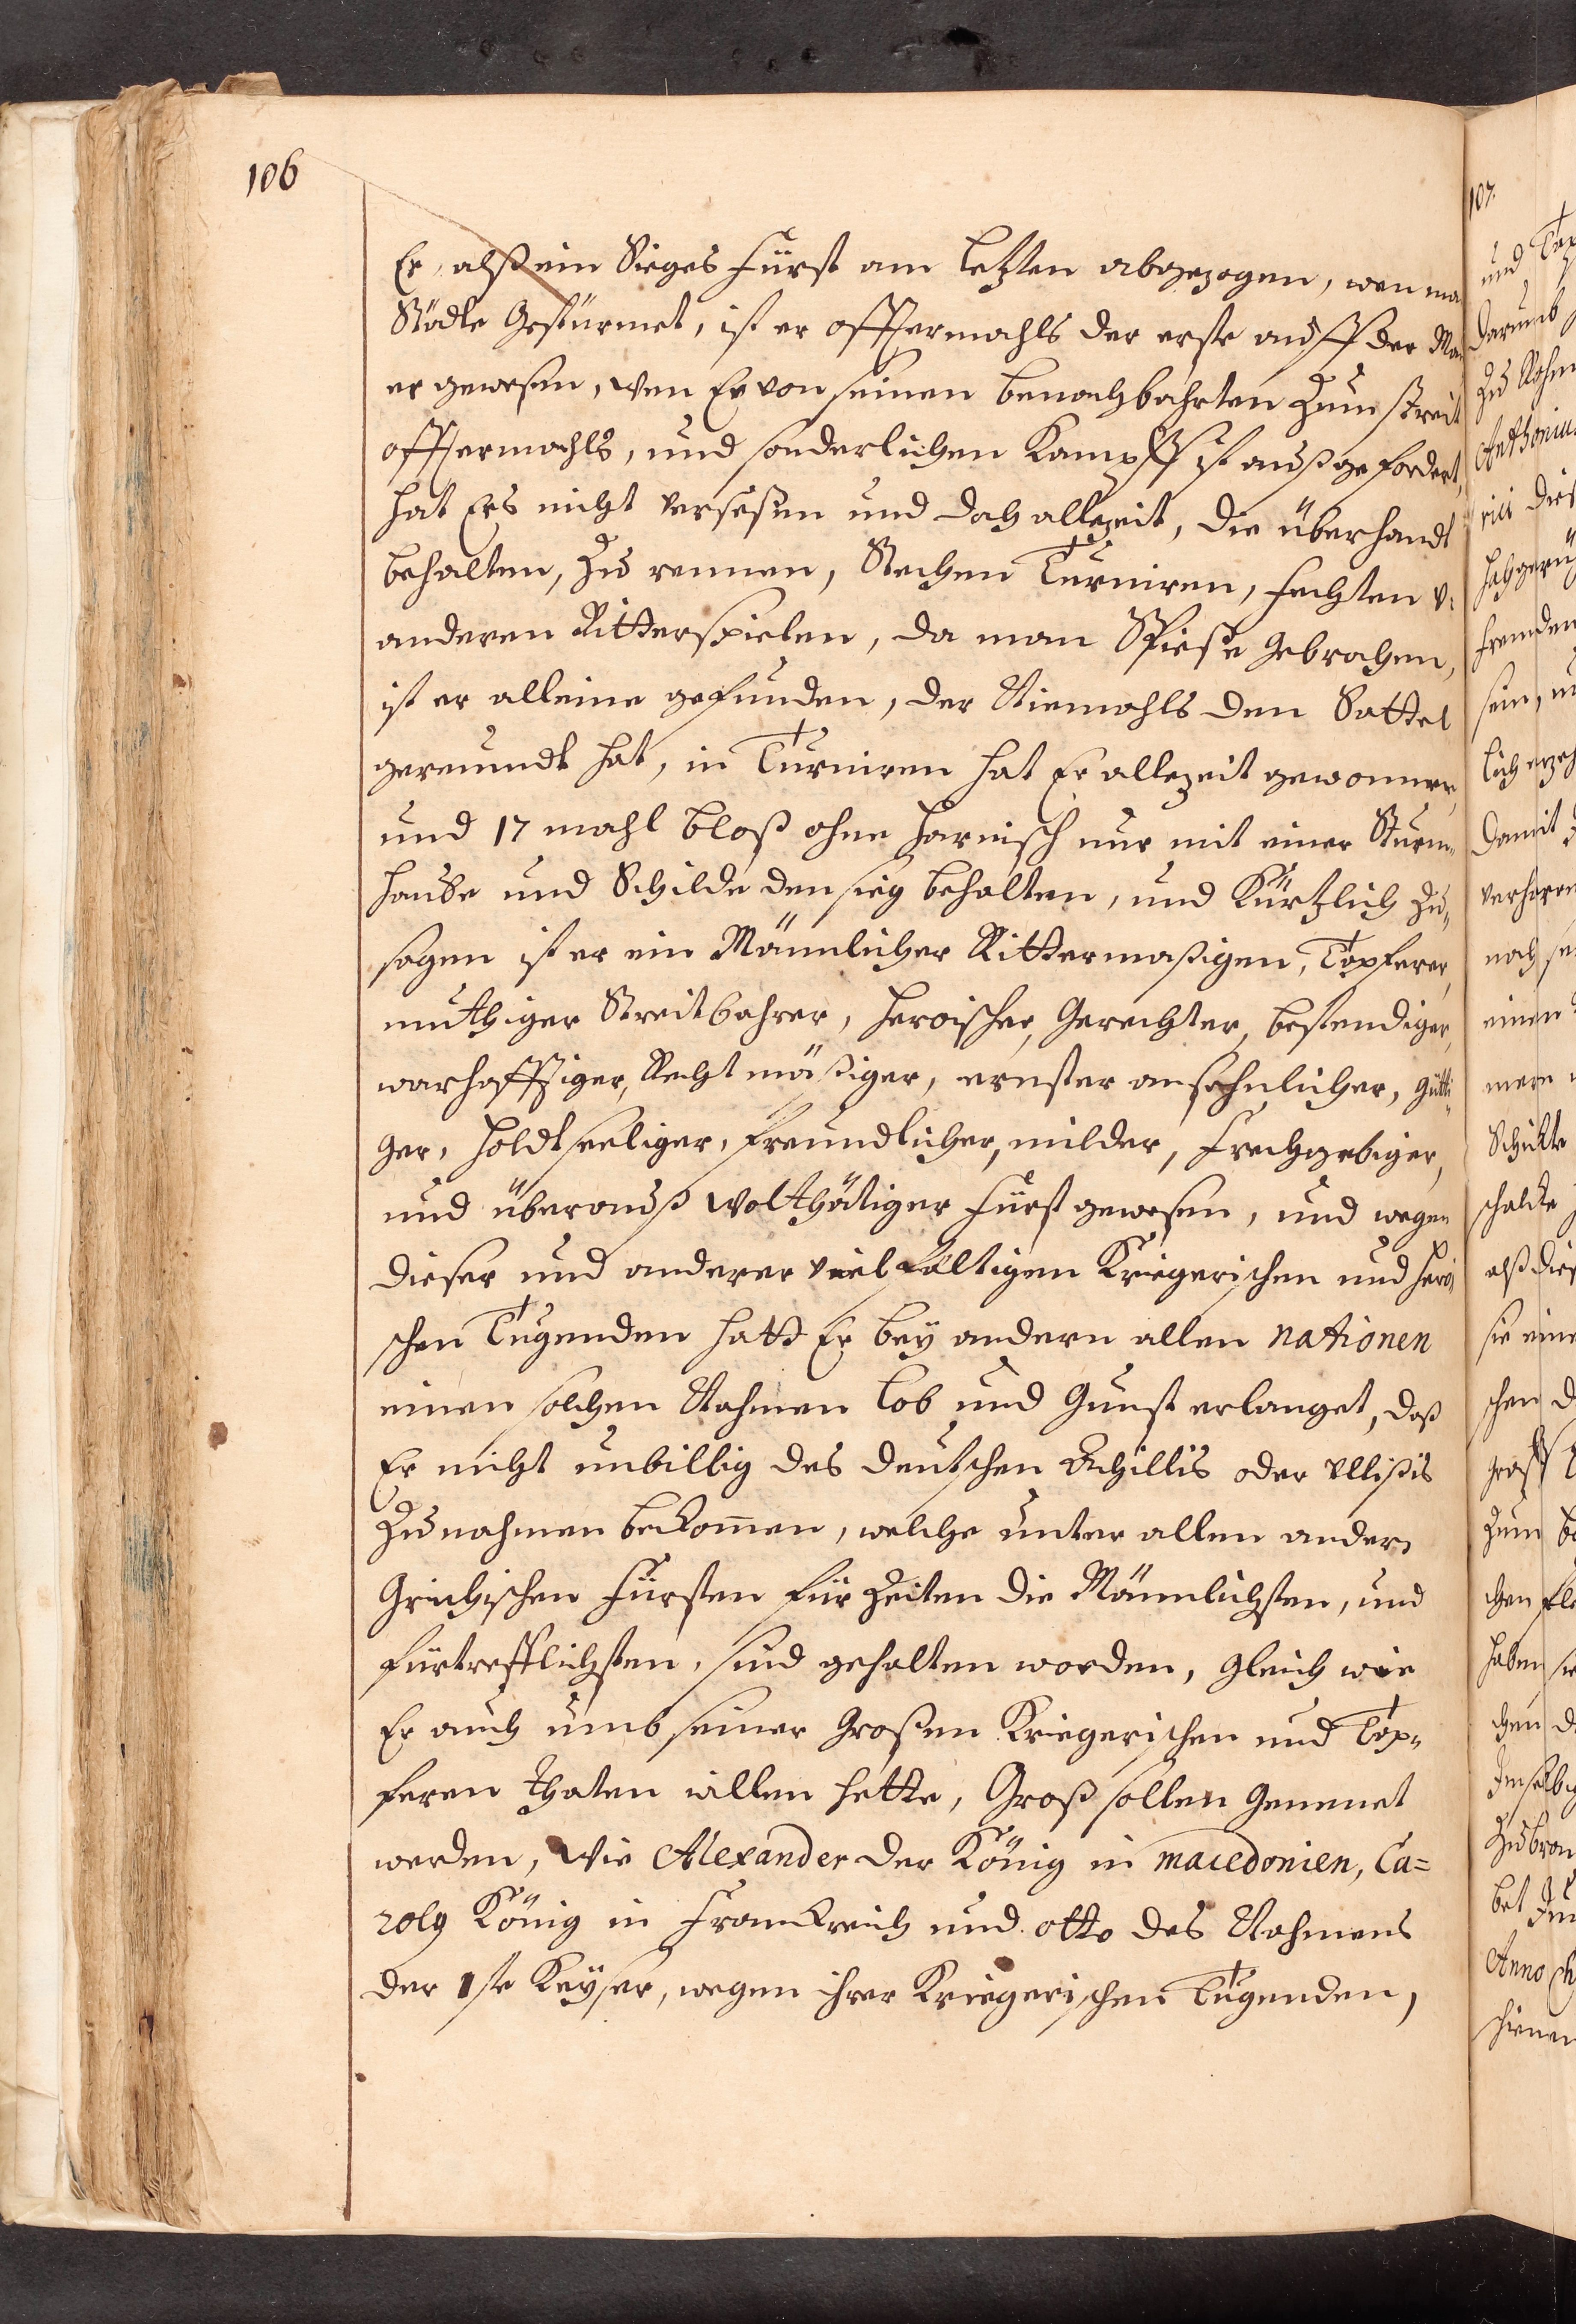 106
Er, alß ein Sieges Fürst am letzten abgezogen, wen ma
Städte Gestürmet, ist er offtermahls der erste auff der Ma
er gewesen, Wen Er von seinen benachbahrten Zum streit
offtermahls, und sonderlichen Kampff ist außgefodert,
hat Ers nicht versesen und doch allezeit, die überhandt
behalten, Zu rennen, Stechen Turniren, fechten u:
anderen Ritterspielen, da man Spieße Gebrochen,
ist er alleine gefunden, der Niemahls den Sattel
gereumdt hat, in Turniren hat Er allezeit gewonnen,
und 17 mahl bloß ohne harnisch nur mit einer Sturm-
haube und Schilde den sieg behalten, und Kürtzlich Zu-
sagen ist er ein Männlicher Rittermaßigen, Tapferer,
muthiger Streitbahrer, heroischer, Gerechter, bestendiger,
warhafftiger, Rechtmäßiger, ernster ansehnlicher, gütti-
ger, holdtseeliger, freundlicher, milder, Freygebiger,
und überauß Wolthätiger Fürst gewesen, und wegen
dieser und anderer vielfältigen Kriegerischen und heroi-
schen Tugenden hatt Er bey andern allen nationen
einen solchen Nahmen Lob und Gunst erlanget, daß
Er nicht unbillig des deutschen Achillis oder Ulissis
Zunahmen bekommen, welche unter allen andern
Grichischen Fürsten für Zeiten die Männlichsten, und
fürtrefflichsten, sind gehalten worden, gleich wie
Er auch umb seiner Großen Kriegerischen und Tap-
feren thaten willen hette, Groß sollen Gennenet
werden, Wie Alexander der König in macedonien, Ca=
roly König in Franckreich und otto des Nahmens
der 1ste Keyser, wegen ihrer Kriegerischen Tugenden,
107.
und Tap
darumb
Zu Rohm
Anthoniu
rici dies
hochgerü
fremden
sein, u
lich erzeh
damit
verheren
noch se
einen
mern
Schickte
schalck
alß dies
sie eine
schen d
groß
Zum be
chen fle
haben sie
chen d
demselbig
Zubron
bet
Anno Ch
schienen